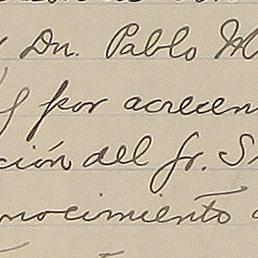 y Dn. Pablo M
y por acrecen
ción del Sr. S
nocimiento